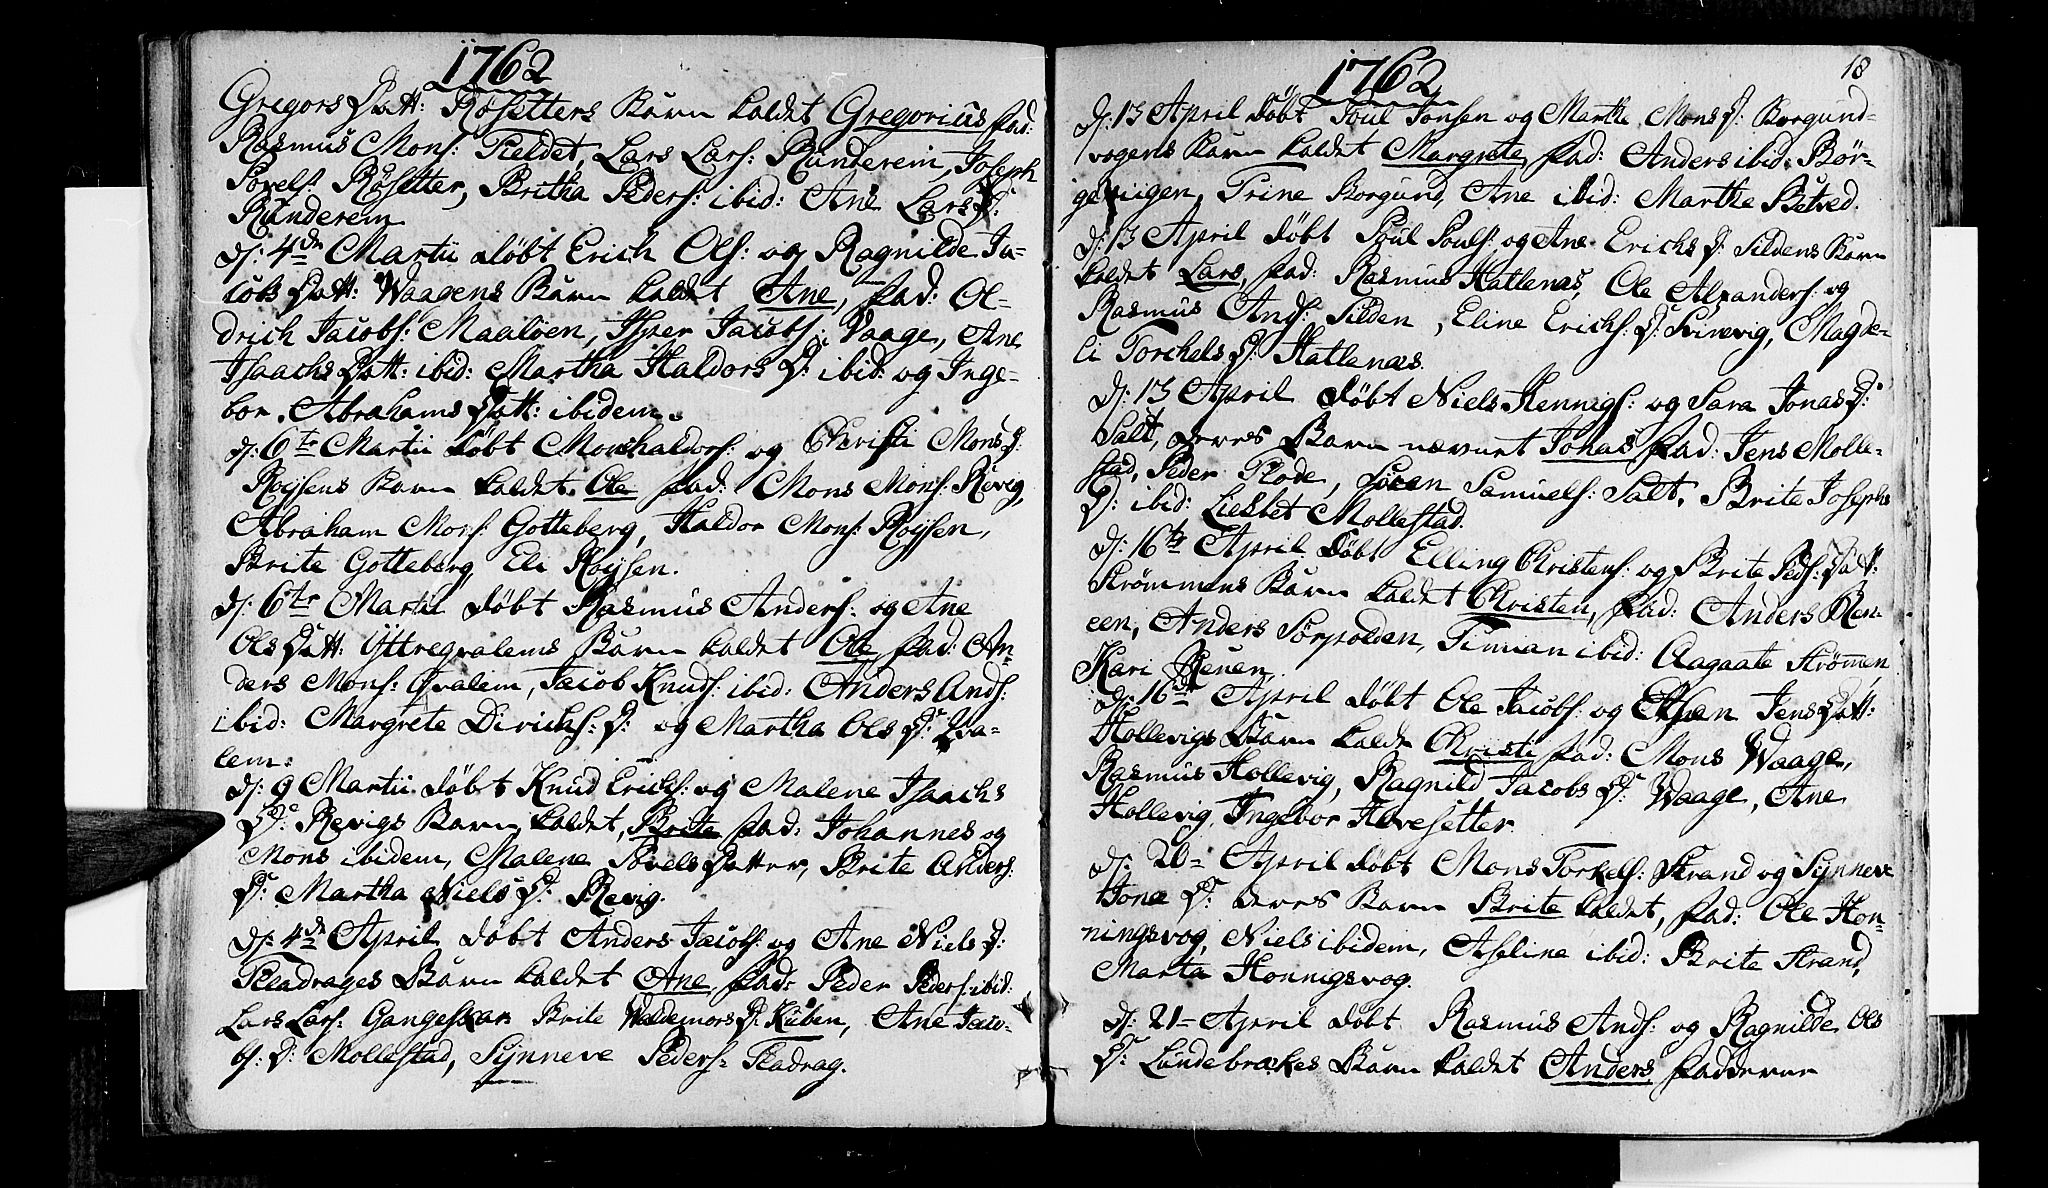 1762
Gregors Datt: Røsetters Barn kaldet Gregorius fad:
Rasmus Mons: Fieldet, Lars Lars: Runderein, Joseph
Povels: Røsetter, Britha Peders: ibid: Ane Lars D:
Runderein
d: 4de Martii døbt Erich Ols: og Ragnilde Ja-
cobs Datt: Waagens Barn kaldet Ane, fad: Ol-
drich Jacobs: Maaløen, Jsper Jacobs: Vaage, Ane
Isaachs Datt: ibid: Martha Haldors D: ibid: og Inge-
bor. Abrahams Datt: ibidem.
d: 6te Martii døbt Mons haldors: og Christi Mons D:
Røysens Barn kaldet Ole fad: Mons Mons: Revig,
Abraham Mons: Gotteberg, Haldor Mons: Røysen,
Brite Gotteberg, Eli Røysen.
d: 6te Martii døbt Rasmus Anders: og Ane
Ols Datt: Yttreqvalems Barn kaldet Ole, fad: An-
ders Mons: Qvalem, Jacob Knuds: ibid: Anders Ands:
ibid: Margrete Dirichs: D: og Martha Ols D: Qva-
lem:
d: 9 Martii døbt Knud Erichs: og Malene Isaachs
D: Revigs Barn kaldet, Brite fad: Johannes og
Mons ibidem, Malene Povels Datter, Brite Anders:
D: Martha Niels D: Revig.
d: 4de April døbt Anders Jacobs: og Ane Niels D:
Fladrages Barn kaldet Ane, fad: Peder Peders: ibid:
Lars Lars: Gangeskar Brite Waldemors D: Kuben, Ane Jaco-
bs: D: Mollestad, Synneve Peders: Fladrag.
1762
18
d: 13 April døbt Poul Jonsen og Marthe Mons D: Borgund-
vogens Barn kaldet Margrete fad: Anders ibid: Bør-
ge iigen, Trine Borgund, Ane ibid: Marthe Betved.
d: 13 April døbt Poul Pouls: og Ane Erichs D: Sildens Barn
kaldet Lars, fad: Rasmus Hatlenæs, Ole Alxanders: og
Rasmus Ands: Silden, Eline Erichs: D: Svinevig, Magde-
li Torchels D: Hatlenæs.
d: 13 April døbt Niels Hennigs: og Sara Jonas D:
Salt, deres Barn nævnt Jonas fad: Jens Molle-
stad, Peder Flode, Søren Samuels: Salt, Brite Josephs
D: ibid: Liebbet Mollestad.
d: 16te April døbt Elling Christens: og Brite Peds: Datt:
Strømmens Barn kaldet Christen, fad: Anders Ren-
een, Anders Sørpolden, Finnan ibid: Aagaate Strømen,
Kari Reuen.
d: 16de April døbt Ole Jacobs: og Elsen Jens Datt:
Hollevigs Barn kaldt Christi fad: Mons Waage,
Rasmus Hollevig, Ragnild Jacobs D: Waage, Ane
Hollevig, Ingebor Hovesetter.
d: 20- April døbt Mons Torkels: Strand og Synneve
Jone D: deres Barn Brite kaldet, fad: Ole Hon-
ningsvog, Niels ibidem, Aseline ibid: Brite Strand,
Marta Honnigsvog.
d: 21- April døbt Rasmus Ands: og Ragnilde Ols
D: Lundebrækes Barn kaldet Anders fadderne